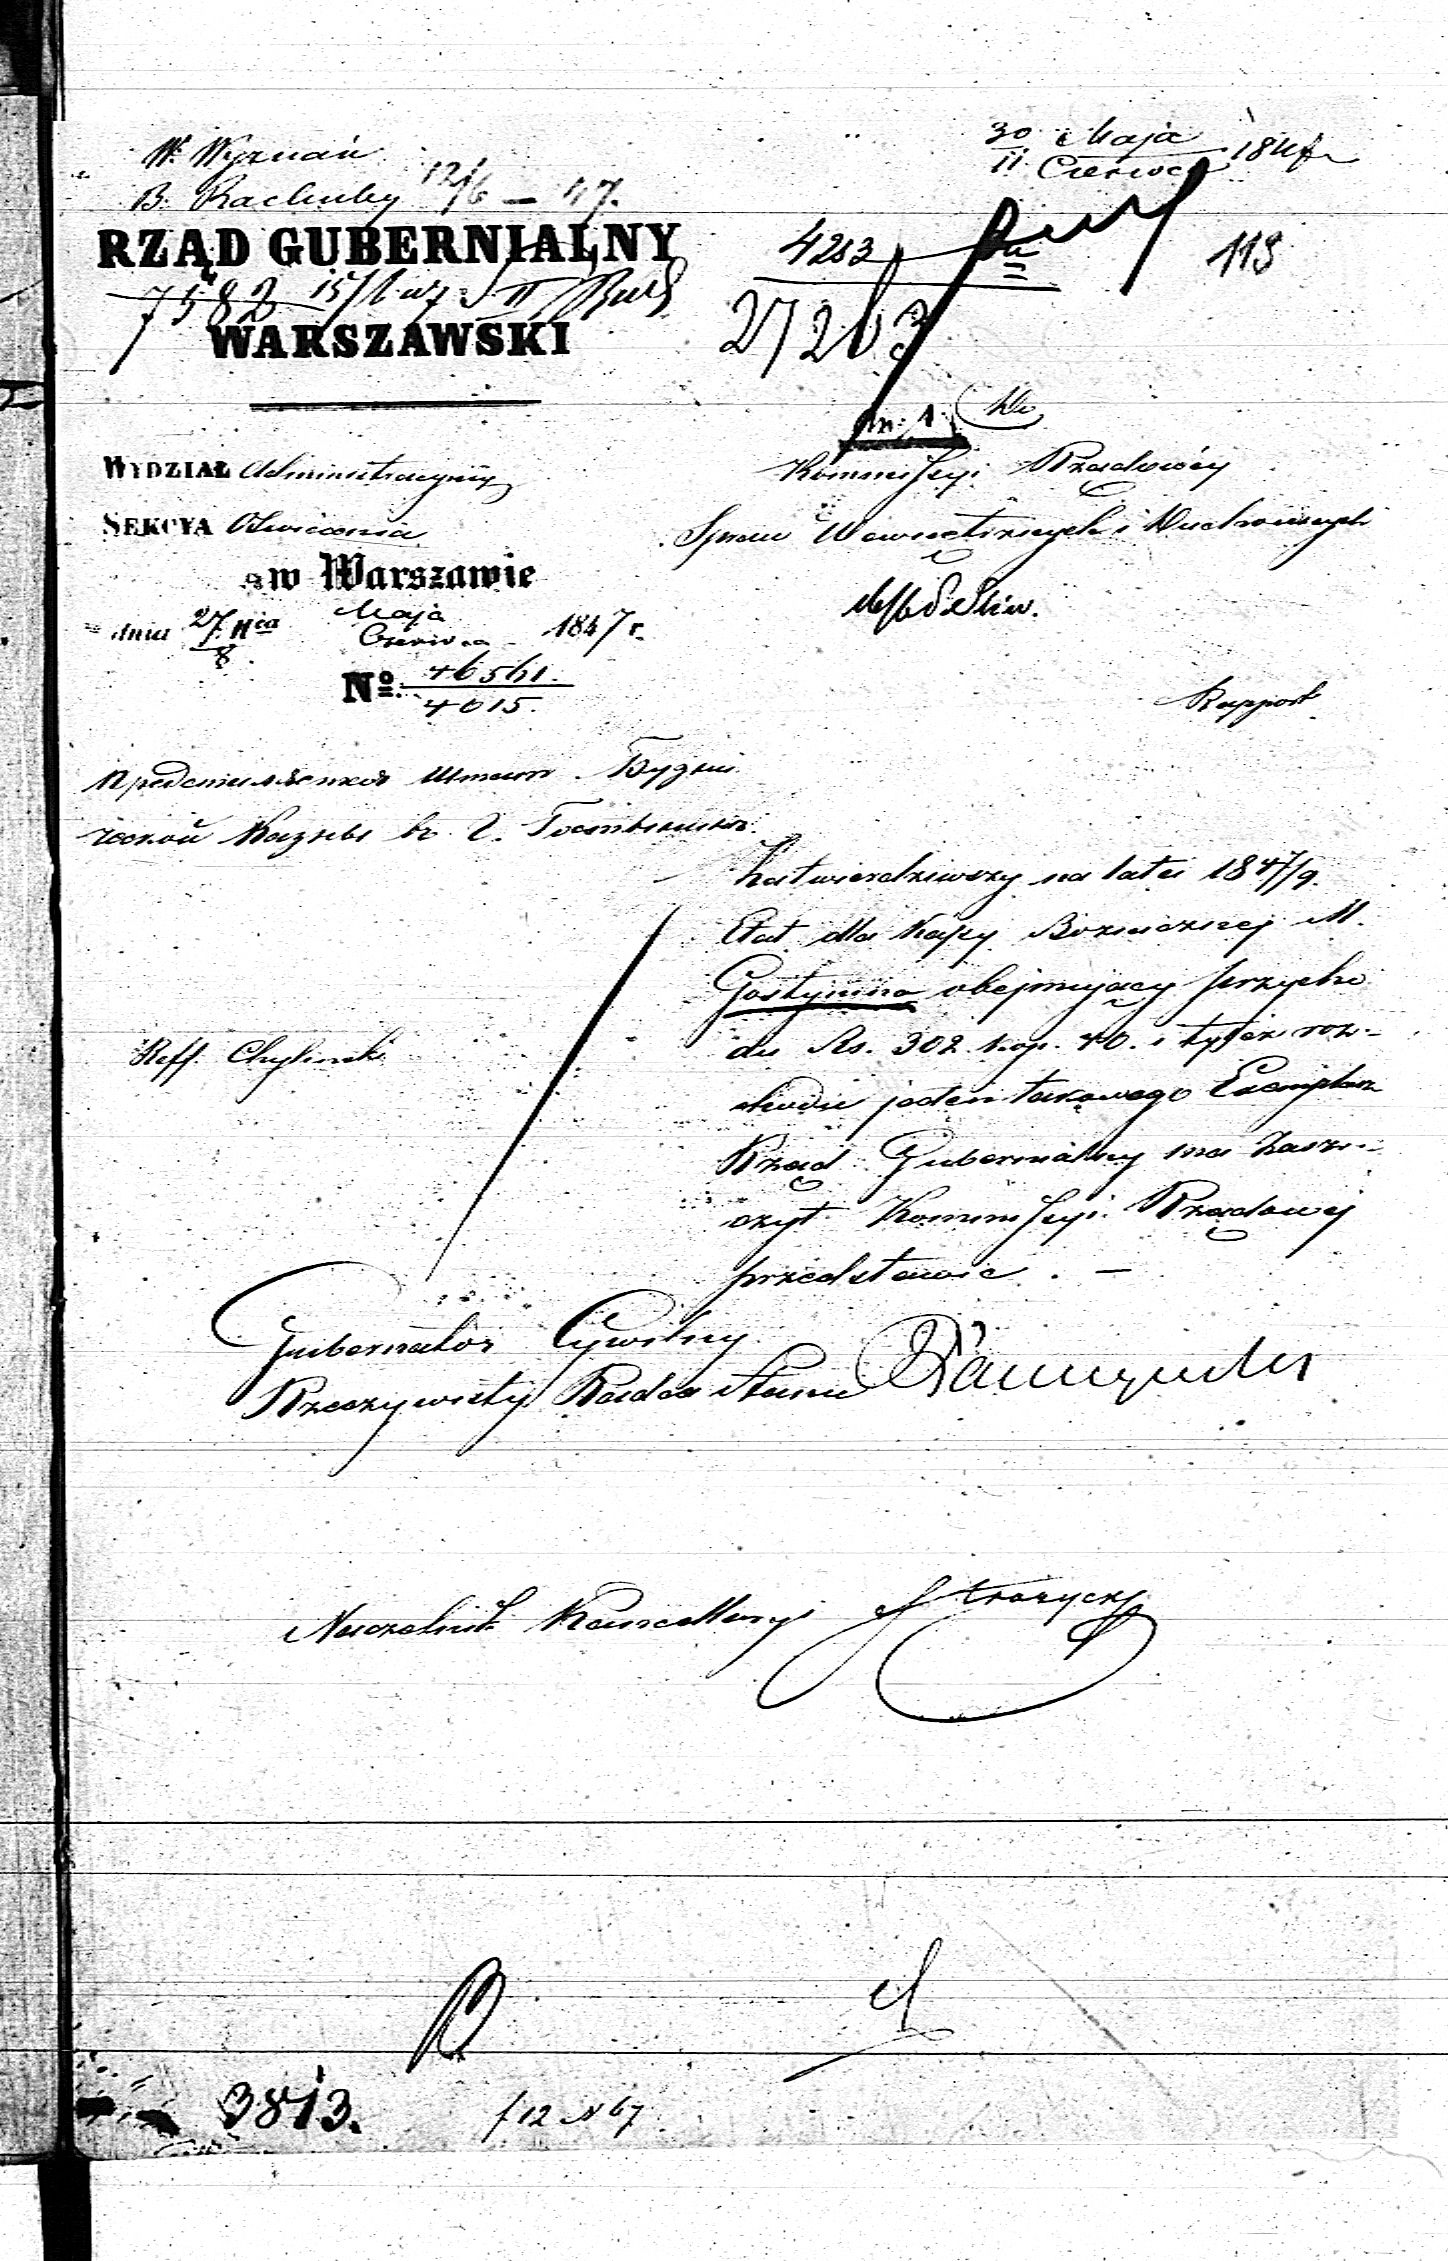 W. Wyznań
B. Rachuby 12/6 – 47.
30 Maja
11 Czerwca 1847
RZĄD GUBERNIALNY
WARSZAWSKI
7582 15/6 47 S II
4283
27263
119
WYDZIAŁ Administracyjny
SEKCYA Oświecenia
w Warszawie
dnia 27 Maja
8 Czerwca 1847 r.
No. 46561
4015.
Kommissyi Rządowéy
Spraw Wewnętrznych i Duchownych
Rapport
въ г.
Zatwierdziwszy na lata 1847/9.
Etat dla Kassy Bożniczney M.
Gostynina obejmujący przycho
du Rs. 302 kop. 40. i tyleż roz-
chodu jeden takowego Exemplarz
Rząd Gubernialny ma zasz-
czyt Kommissyi Rządowej
przedstawić. –
Reff. Chyliński
Gubernator Cywilny
Rzeczywisty Radca Stanu
Naczelnik Kancellaryi
3813.
f 12 N 67